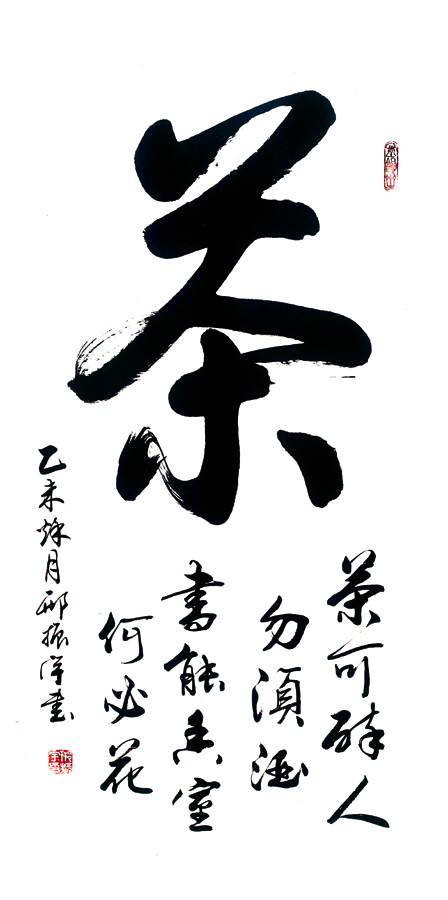 茶
茶可醉人
勿須酒
書能香室
何必花
乙未秋月邢振淳書